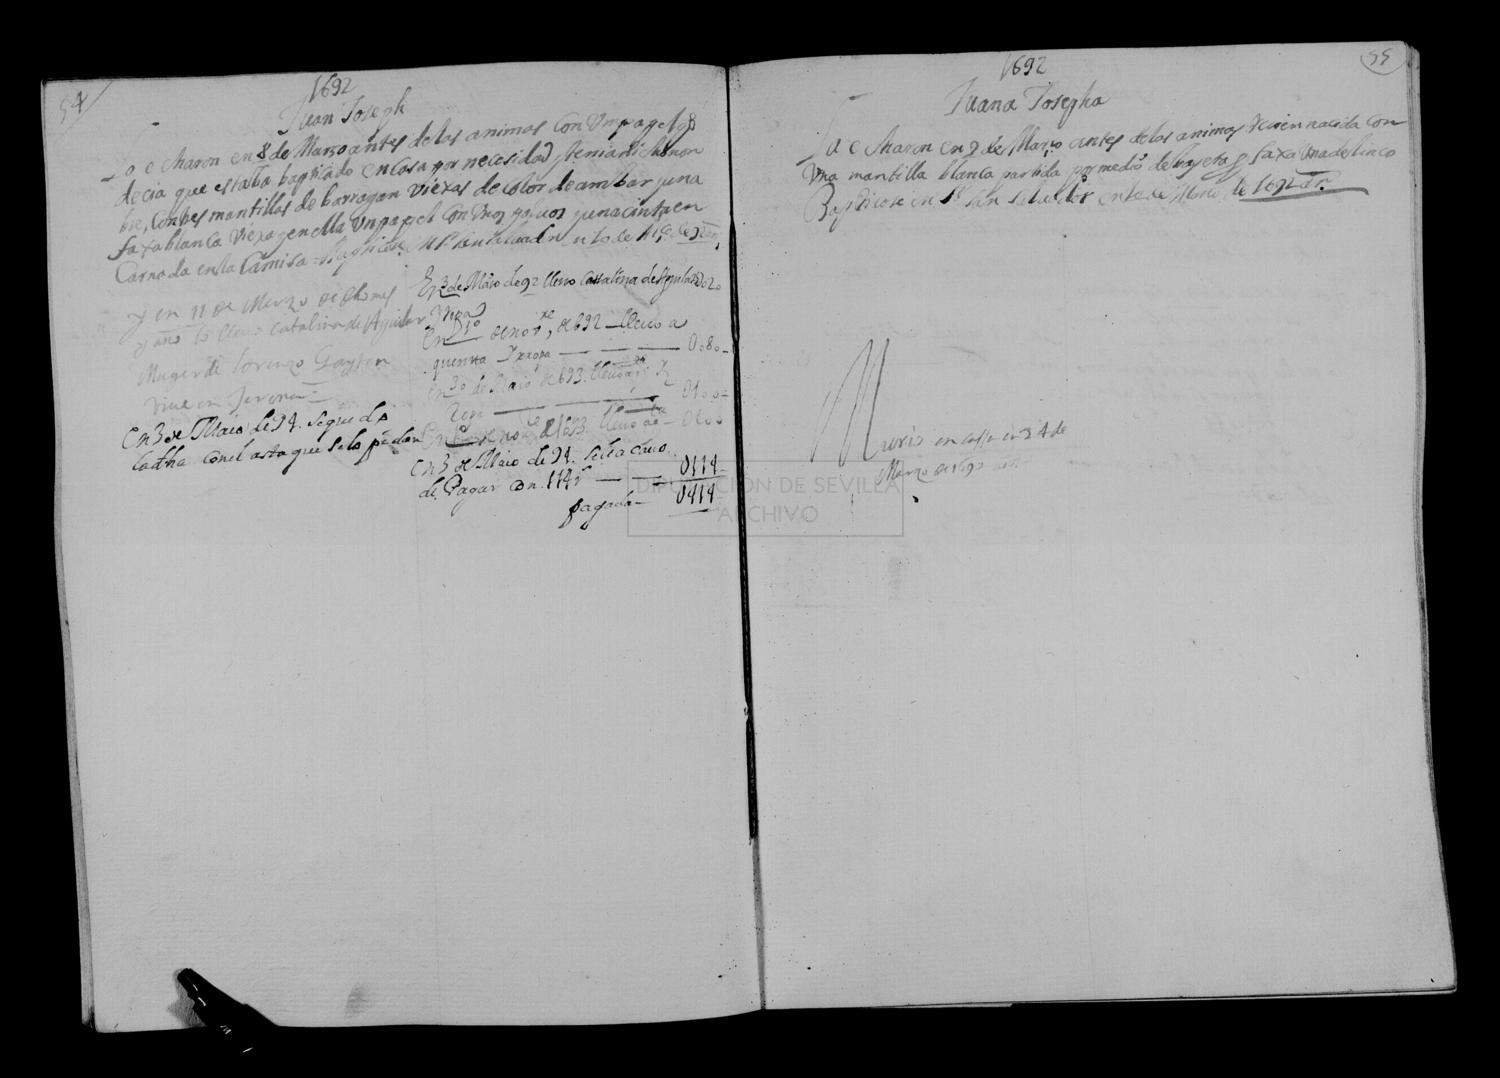 54
1692
Juan Joseph
Lo echaron en 8 de Marzo antes de las animas con Un papel q
decia que estaba baptizado en casa por necesidad y tenia dicho non
bre, con tres mantillas de barragan viexas de color de ambar y una
faxa blanca viexa y en ella Un papel con Unos polvos y una cinta en
Carnada en la Camisa = en 10 de
y en 11 de Marzo de dho mes
y año lo llevo Catalina de Aguilar
Muger de Lorenzo Gayton
vive en
En 3 de Maio de 94. se que do
la dha con el asta que se lo pidan
En 3 de Maio de 92 llevo Catalina de Aguilar 0020
En de nore, de 692 llevo a
quenta 0080
en 30 de Maio de 693. llevo
0100
En de nore de 1693. llevo 0100
en 3 de Maio de 94. se le acavo
de Pagar con 114 r 0114
pagada 0414
55
1692
Juana Josepha
La echaron en 9 de Março antes de las animas recien nacida con
Una mantilla blanca partida por medio de bayeta y faxa Una de lienço
Baptiçose en Sn San Salvador en de Março de 1692 as.
Murio en casa en 24 de
Marzo de 1692
DIPUTACIÓN DE SEVILLA
ARCHIVO